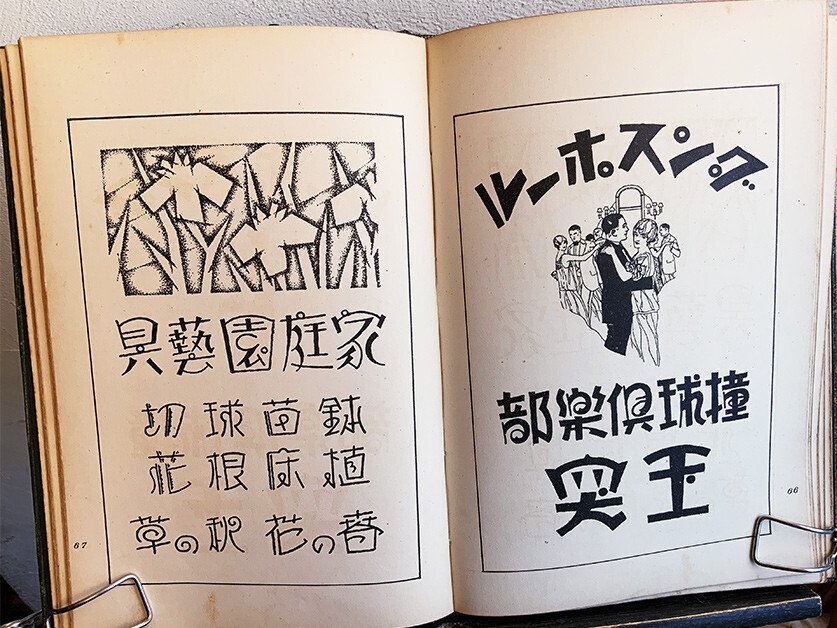 ダンスホール
撞球倶樂部
玉突
66
家庭園藝具
鉢植
苗床
球根
切花
春の花 秋の草
67